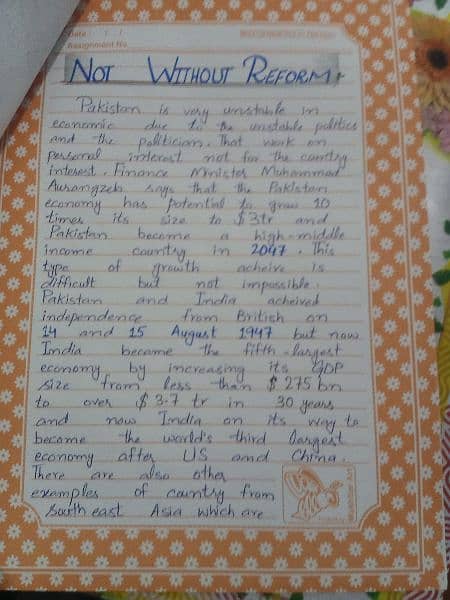 Date: / /
Assignment No.
NOT WITHOUT REFORM
Pakistan is very unstable in
economic due to the unstable politics
and the politician. That work on
personal interest not for the country
interest. Finance Minister Muhammad
Aurangzeb says that the Pakistan
economy has potential to grow 10
times its size to $3tr and
Pakistan become a high-middle
income country in 2047. This
type of growth acheive is
difficult but not impossible.
Pakistan and India acheived
independence from British on
14 and 15 August 1947 but now
India become the fifth-largest
economy by increasing its GDP
size from less than $ 275 bn
to over $ 3.7 tr in 30 years
and now India on its way to
become the world's third largest
economy after US and China.
There are also other
examples of country from
South east Asia which are